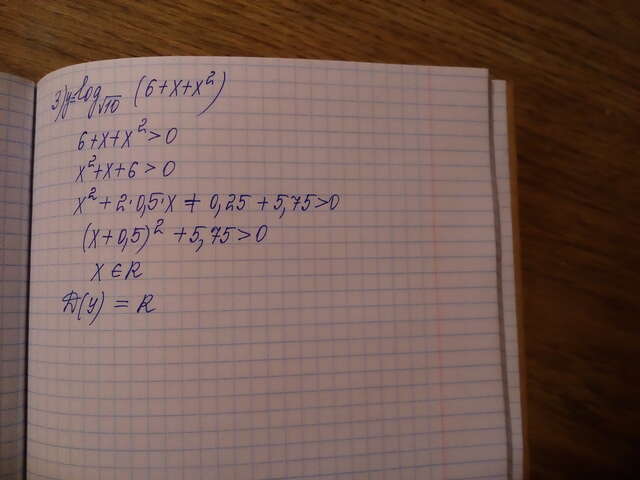 3) y=log√10 (6+x+x²)
6+x+x²>0
x²+x+6>0
x²+2·0,5·x+0,25+5,75>0
(x+0,5)²+5,75>0
x∈R
D(y)=R